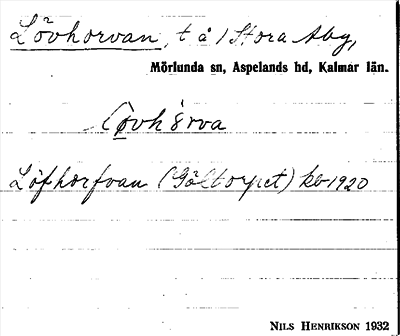 Lövhorvan, t å 1 Stora Aby,
Mörlunda sn, Aspelands hd, Kalmar län.
Løvhørva
Löfhorfvan (Göltorpet) kb 1920
Nils Henrikson 1932